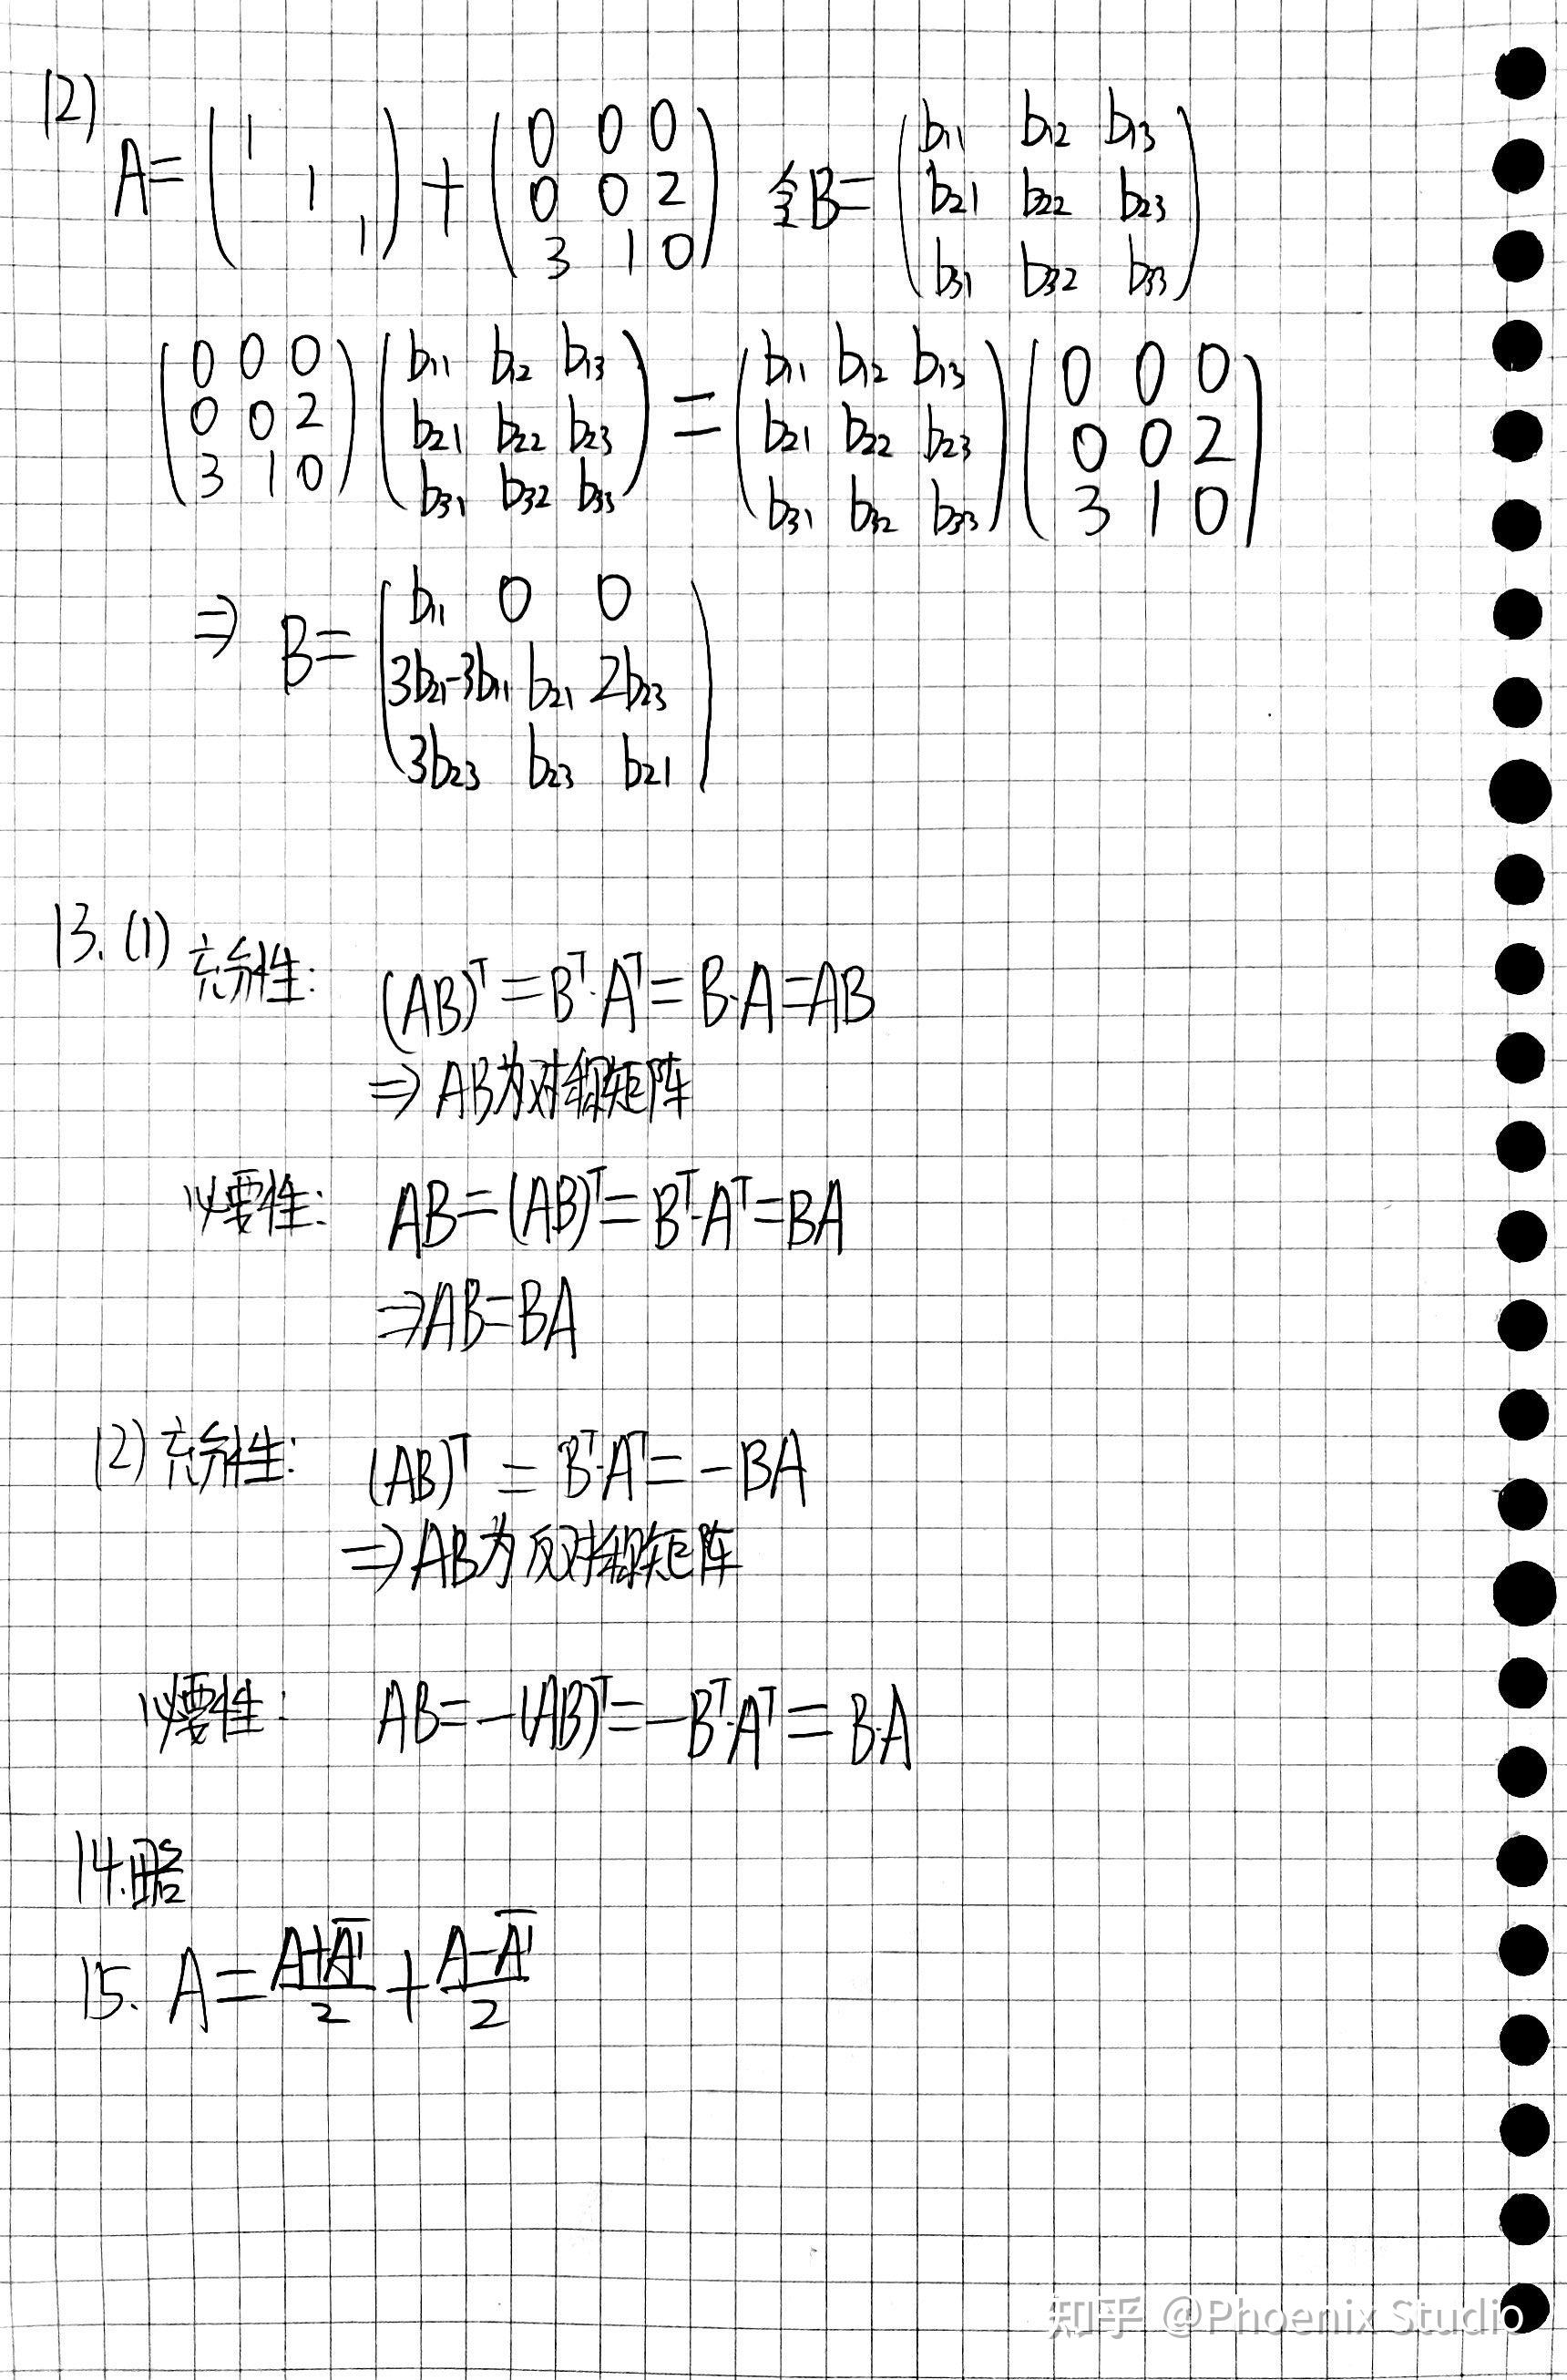 (2) A=(1 1 1)+(0 0 0 0 0 2 3 1 0) 令B=(b11 b12 b13 b21 b22 b23 b31 b32 b33)
(0 0 0 0 0 2 3 1 0)(b11 b12 b13 b21 b22 b23 b31 b32 b33)=(b11 b12 b13 b21 b22 b23 b31 b32 b33)(0 0 0 0 0 2 3 1 0)
⇒ B=(b11 0 0 3b21-3b11 b21 2b23 3b23 b23 b21)
13.(1) 充分性: (AB)^T=B^T·A^T=B·A=AB
⇒AB为对称矩阵
必要性: AB=(AB)^T=B^T·A^T=BA
⇒AB=BA
(2) 充分性: (AB)^T=B^T·A^T=-BA
⇒AB为反对称矩阵
必要性: AB=-(AB)^T=-B^T·A^T=B·A
14.略
15. A=(A+A^T)/2+(A-A^T)/2
知乎 @Phoenix Studio